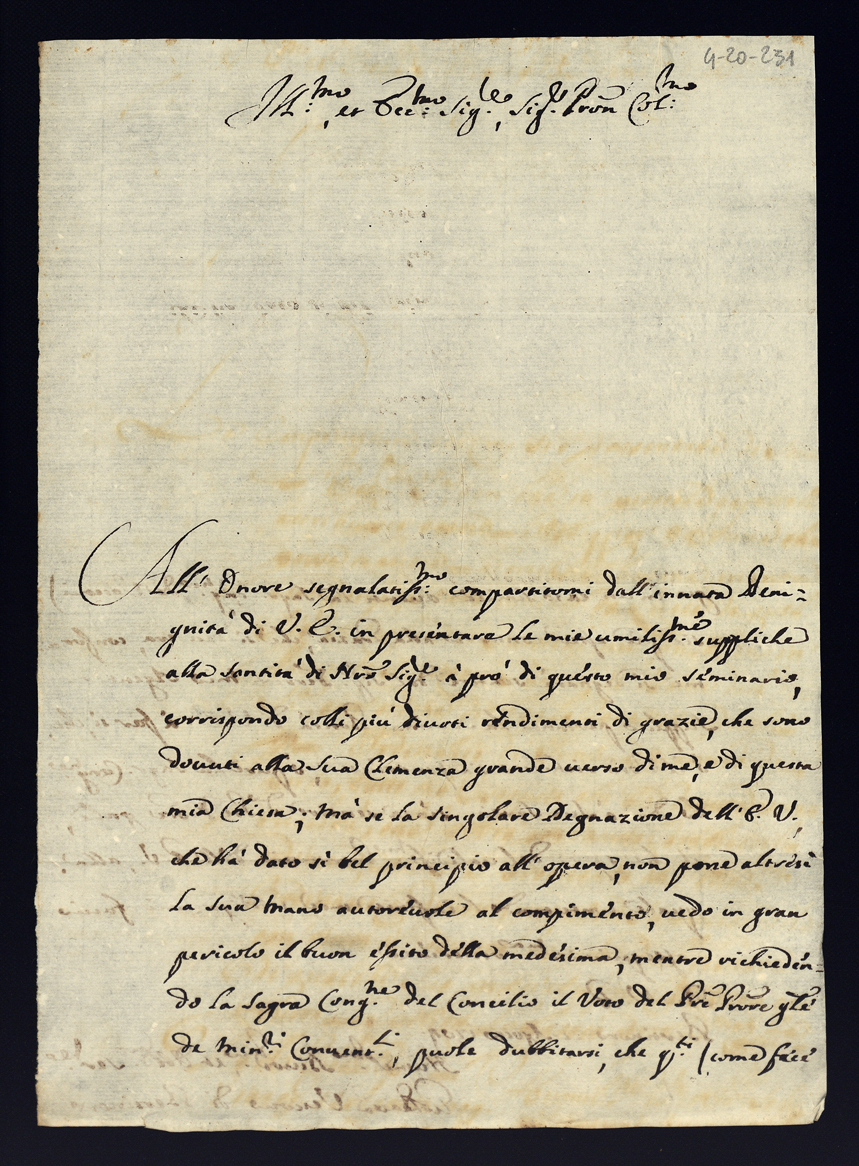 4-20-231
Ill:mo, et Ecc:mo Sig:re, Sig:r Pron Col:mo
All' Onore segnalatiss:mo compartitomi dall'innata Beni=
gnità di V. E. in presentare le mie umiliss:me suppliche
alla santità di Nrō Sig:re à prò di questo mio seminario,
corrispondo colli più divoti rendimenti di grazie, che sono
dovuti alla sua Clemenza grande verso di me, e di questa
mia Chiesa; mà se la singolare Degnazione dell'E. V.,
che hà dato sì bel principio all'opera, non pone altresì
la sua mano autorevole al compimento, vedo in gran
pericolo il buon essito della medesima, mentre richieden=
do la sagra Cong:ne del Concilio il Voto del Prē Prōre gñle
de Min:ri Convent:li, puole dubbitarsi, che q:ti (come fece